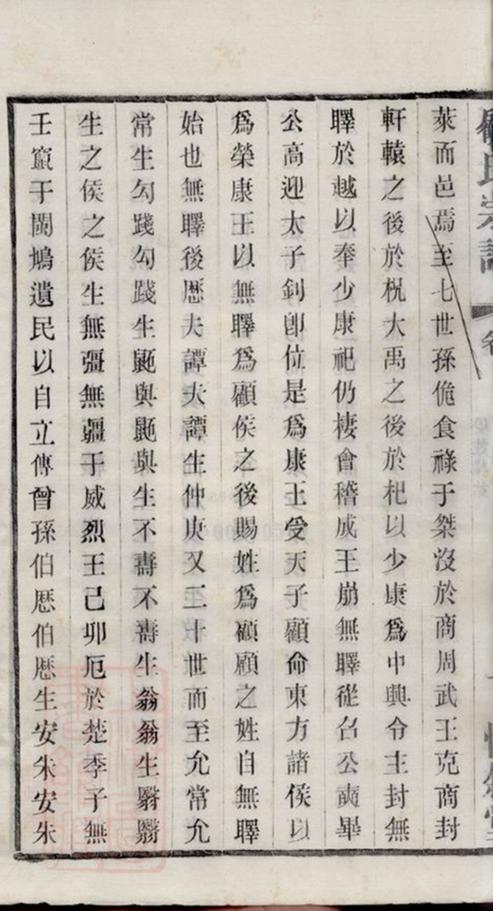 萊而邑焉至七世孫佹食祿于桀沒於商周武王克商封
軒轅之後於柷大禹之後於杞以少康爲中興令主封無
䁺於越以奉少康祀仍棲會稽成王崩無䁺從召公奭畢
公高迎太子釗卽位是爲康王受天子顧命東方諸侯以
爲榮康王以無䁺爲顧侯之後賜姓爲顧顧之姓自無䁺
始也無䁺後厯夫譚夫譚生仲庚又二十世而至允常允
常生勾踐勾踐生鼫與鼫與生不壽不壽生翁翁生翳翳
生之侯之侯生無彊無疆于威烈王己卯厄於楚季子無
壬竄于閩鳩遺民以自立傳曾孫伯厯伯厯生安朱安朱